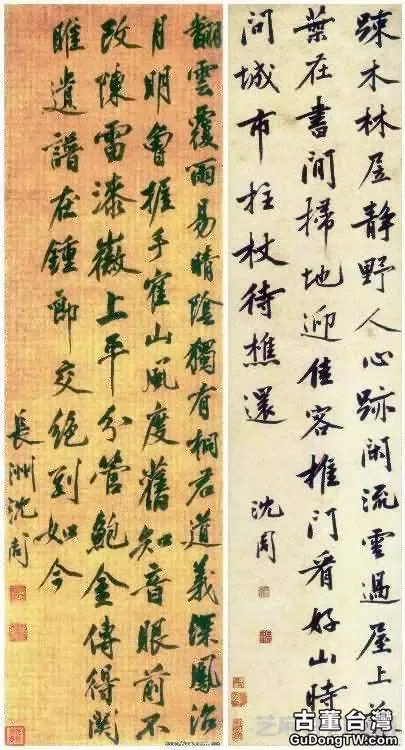 踈木林居静野人心跡闲流雲過屋上
葉在書間掃地迎佳客推門看好山時
問城市拄杖待樵還
沈周
翻雲覆雨易晴陰獨有桐君道義深鳳沼
月明曾握手寉山風度舊知音眼前不
改陳雷漆徽上平分管鮑金傳得関
雎遺譜在鍾郎交絶到如今
長洲沈周
古董台灣
GuDongTW.com